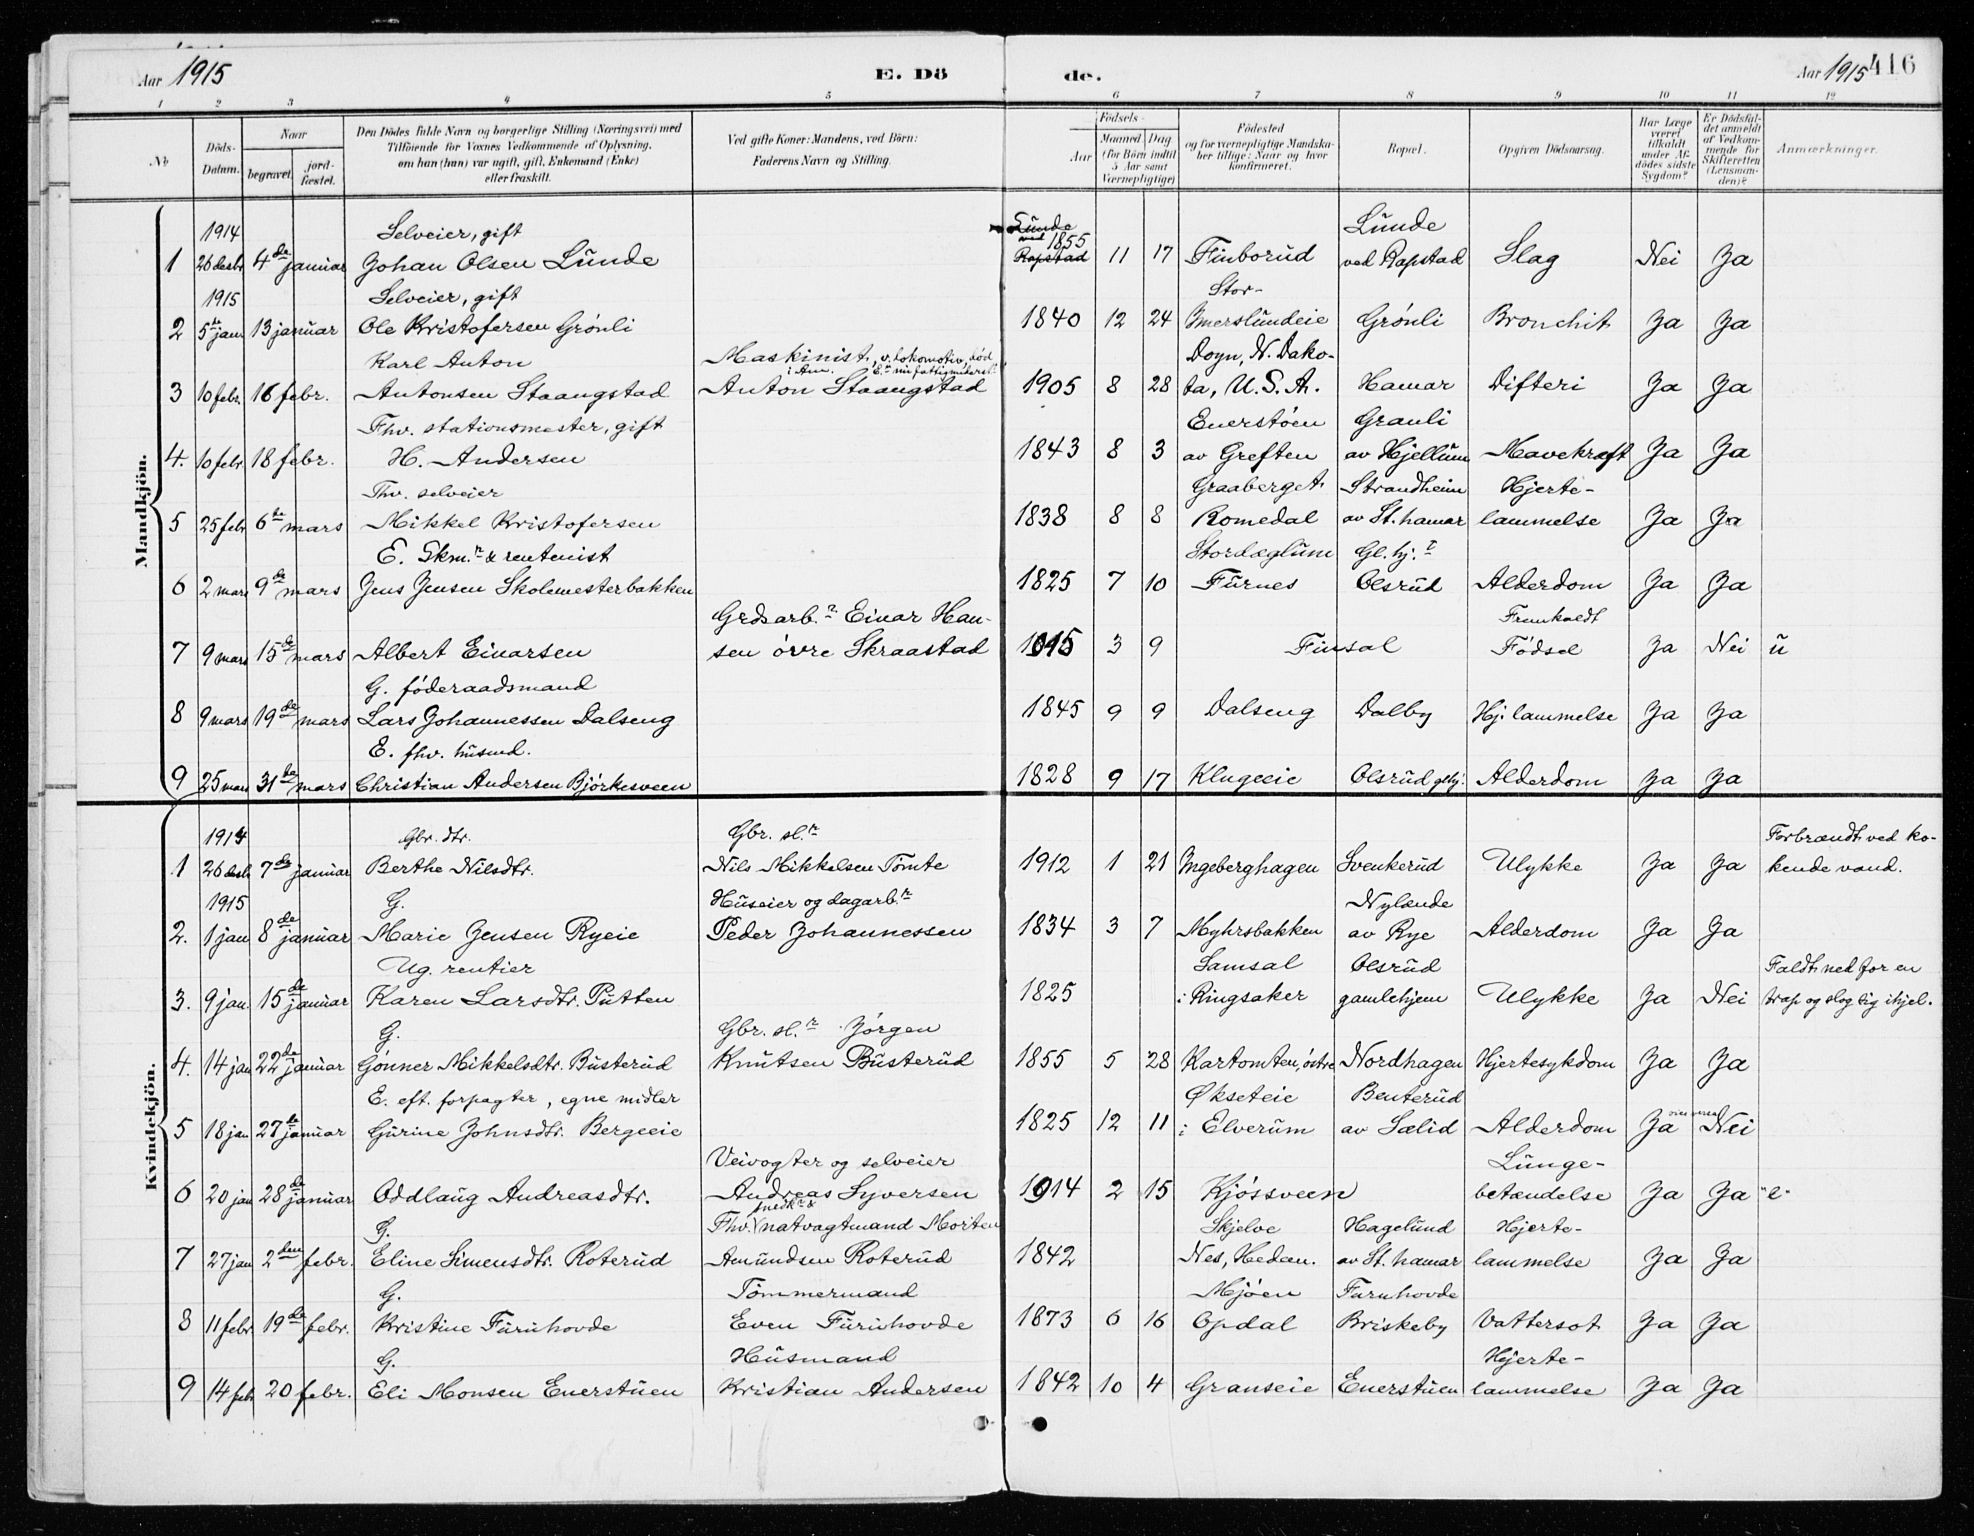 Aar 1915
E. Dö
de.
Aar 1915 416
1 2 3 4 5 6 7 8 9 10 11 12
No
Döds-Datum.
Naar
begravet.
jord-fæstet.
Den Dödes fulde Navn og borgerlige Stilling (Næringsvei) med
Tilföiende for Voxnes Vedkommende af Oplysning,
om han (hun) var ugift, gift, Enkemand (Enke)
eller fraskilt.
Ved gifte Koner: Mandens, ved Börn:
Faderens Navn og Stilling.
Födsels-
Aar
Maaned Dag
(for Börn indtil
5 Aar samt
Værnepligtige)
Födested
og for værnepligtige Mandska-
ber tillige: Naar og hvor
konfirmeret.
Bopæl.
Opgiven Dödsaarsag.
Har Læge
været
tilkaldt
under Af-
dödes sidste
Sygdom?
Er Dödsfal-
det anmeldt
af Vedkom-
mende for
Skifteretten
(Lensman-
den)?
Anmærkninger.
Mandkjön.
1914 Selveier, gift Lunde ved Ropstad 1855 Lunde
1 26 desbr 4de januar Johan Olsen Lunde 11 17 Finborud ved Ropstad Slag Nei Ja
1915 Selveier, gift Stor-
2 5te jan 13 januar Ole Kristofersen Grönli 1840 12 24 Imerslundeie Grönli Bronchit Ja Ja
Karl Anton Maskinist, v. lokomotiv, död i Am. Doyn, N. Dako-
3 10 febr. 16 febr. Antonsen Staangstad Anton Staangstad 1905 8 28 ta, U. S. A. Hamar Difteri Ja Ja
Fhv. stationsmester, gift Enerstöen Granli
4. 10 febr 18 febr. H. Andersen 1843 8 3 av Greften av Hjellum Mavekræft Ja Ja
Fhv. selveier Graaberget Strandheim Hjerte-
5 25 febr 6te mars Mikkel Kristofersen 1838 8 8 Romedal av St. hamar lammelse Ja Ja
E. Skm.r & rentenist Stordæglum Gl. hj.
6 2 mars 9de mars Jens Jensen Skolemesterbakken 1825 7 10 Furnes Olsrud Alderdom Ja Ja
Grdsarb.r Einar Han- Fremkaldt
7 9 mars 15de mars Albert Einarsen sen övre Skraastad 1915 3 9 Finsal Födsel Ja Nei u
G. föderaadsmand
8 9 mars 19de mars Lars Johannessen Dalseng 1845 9 9 Dalseng Dalby Hj. lammelse Ja Ja
E. fhv. husmd.
9 25 mars 31te mars Christian Andersen Björkesveen 1828 9 17 Klugeeie Olsrud glhj. Alderdom Ja Ja
Kvindekjön.
1914 Gbr. dtr. Gbr. sl.r Forbrændt ved ko-
1 26 desb 7de januar Berthe Nilsdtr. Nils Mikkelsen Tömte 1912 1 21 Ingeberghagen Svenkerud Ulykke Ja Ja kende vand.
1915 G. Huseier og dagarb.r Nylænde
2. 1 jan 8de januar Marie Jensen Ryeie Peder Johannessen 1834 3 7 Myhrsbakken av Rye Alderdom Ja Ja
Ug. rentier Samsal Olsrud Faldt ned for en
3. 9 jan. 15de januar Karen Larsdtr. Putten 1825 i Ringsaker gamlehjem Ulykke Ja Nei trap og slog sig ihjel.
G. Gbr. sl.r Jörgen
4. 14 jan 22de januar Gönner Mikkelsdtr. Busterud Knutsen Busterud 1855 5 28 Kartomten, östre Nordhagen Hjertesykdom Ja Ja
E. eft. forpagter, egne midler Økseteie Benterud
5 18 jan 27te januar Gurine Johnsdtr. Bergeeie 1825 12 11 i Elverum av Sælid Alderdom Ja Nei
Veivogter og selveier Lunge-
6 20 jan 28de januar Oddlaug Andreasdtr. Andreas Syversen 1914 2 15 Kjössveen betændelse Ja Ja "e"
G. Fhv. snedk.r & natvagtmand Morten Skjelve Hagelund Hjerte-
7 27 jan 2den febr. Eline Simensdtr. Roterud Amundsen Roterud 1842 Nes, Hedem. av St. hamar lammelse Ja Ja
G. Tömmermand Mjöen Furuhovde
8 11 febr 19de febr. Kristine Furuhovde Even Furuhovde 1873 6 16 Opdal Briskeby Vattersot Ja Ja
G. Husmand Hjerte-
9 14 feb. 20 febr. Eli Monsen Enerstuen Kristian Andersen 1842 10 4 Granseie Enerstuen lammelse Ja Ja